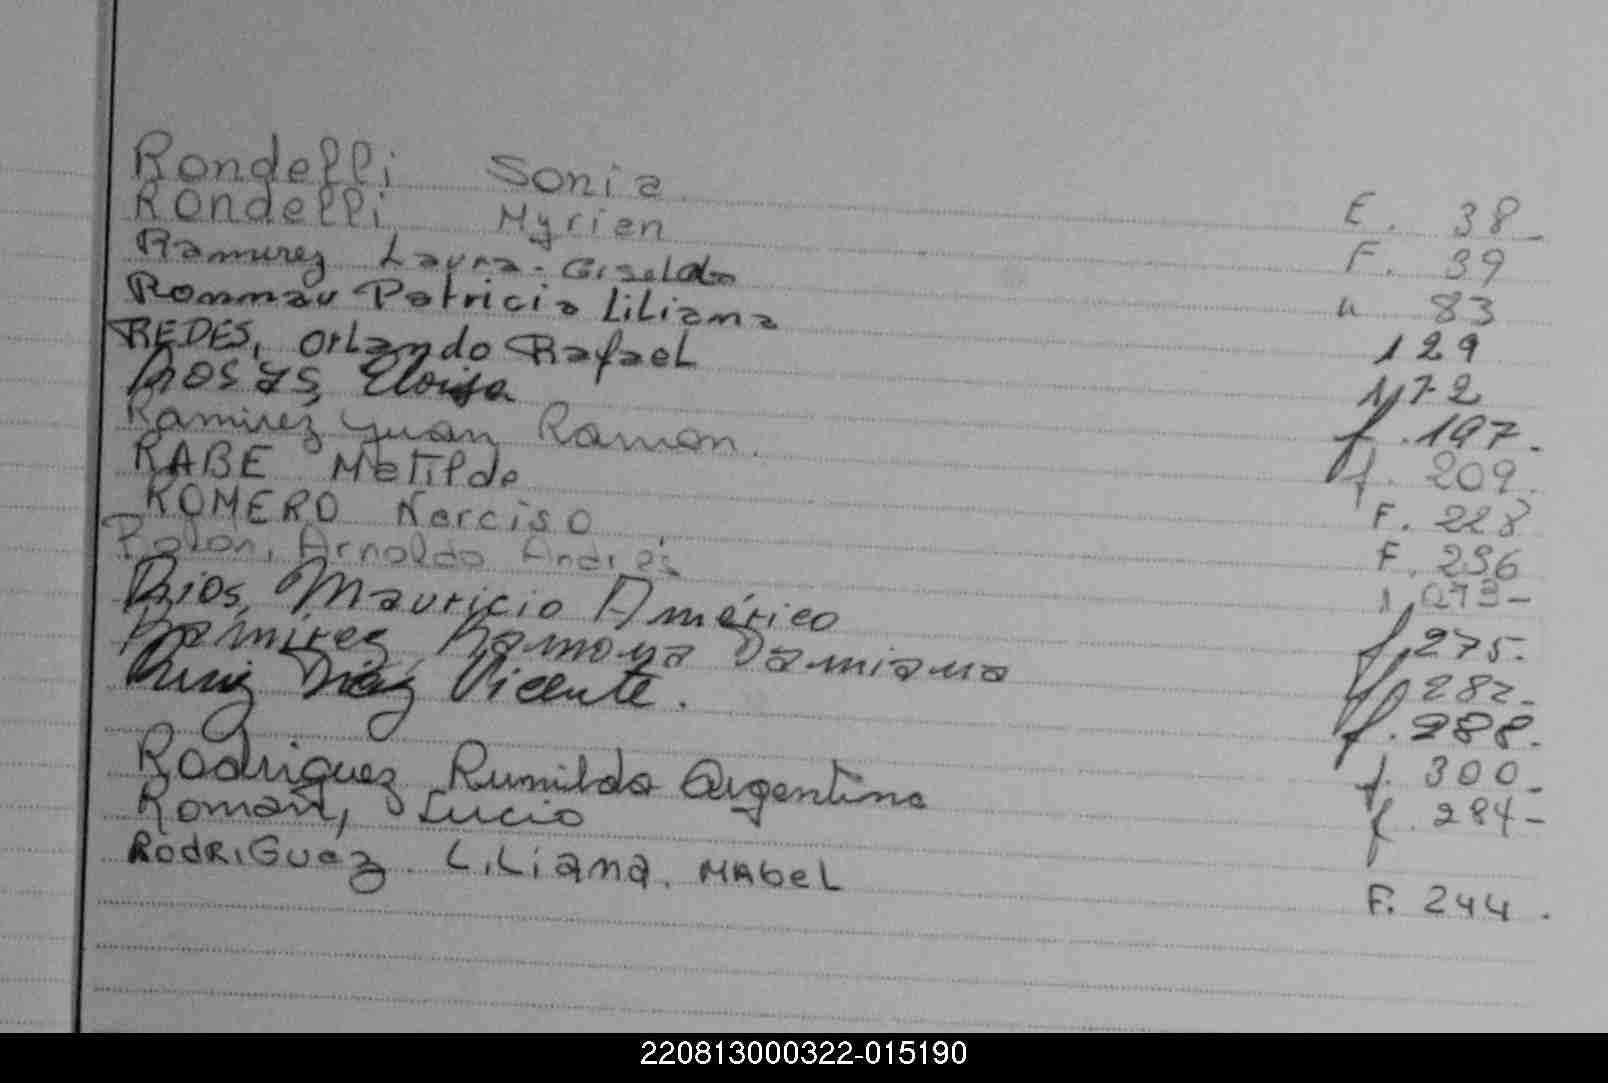 Rondelli Sonia E. 38
Rondelli Myrien F. 39
Ramirez Laura-Giselda " 83
Rommau Patricia Liliana 129
REDES, Orlando Rafael 172
Rosas Eloisa f. 197.
Ramirez Juan Ramon. f. 209.
RABE Metilde F. 228
ROMERO Narciso F. 236
Rolon, Arnoldo Andrés 273-
Rios, Mauricio Américo f. 275.
Ramirez Ramona Damiana f. 282-
Ruiz Diaz Vicente. f. 288.
Rodriguez Rumilda Argentina f. 300-
Roman, Lucio f. 284-
RODRIGUEZ LiLiana. MAbeL F. 244.
220813000322-015190